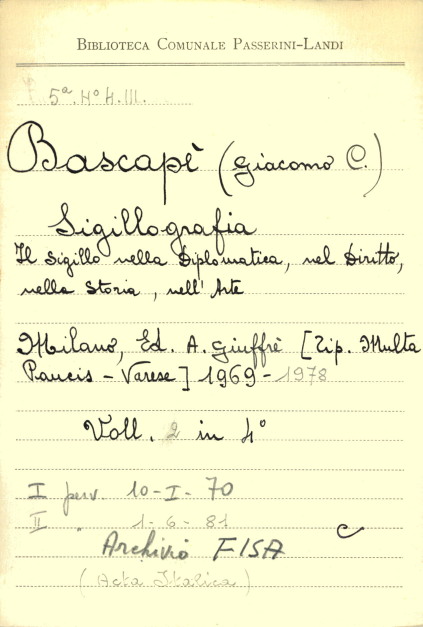 BIBLIOTECA COMUNALE PASSERINI-LANDI
5ª. Hº 4. III.
Bascapè (Giacomo C.)
Sigillografia
Il Sigillo nella Diplomatica, nel Diritto,
nella Storia, nell' Arte
Milano, Ed. A. Giuffrè [Tip. Multa
Paucis - Varese] 1969 - 1978
Voll. 2 in 4°
I perv. 10-I-70
II " 1-6-81
C
Archivio FISA
(Acta Italica)